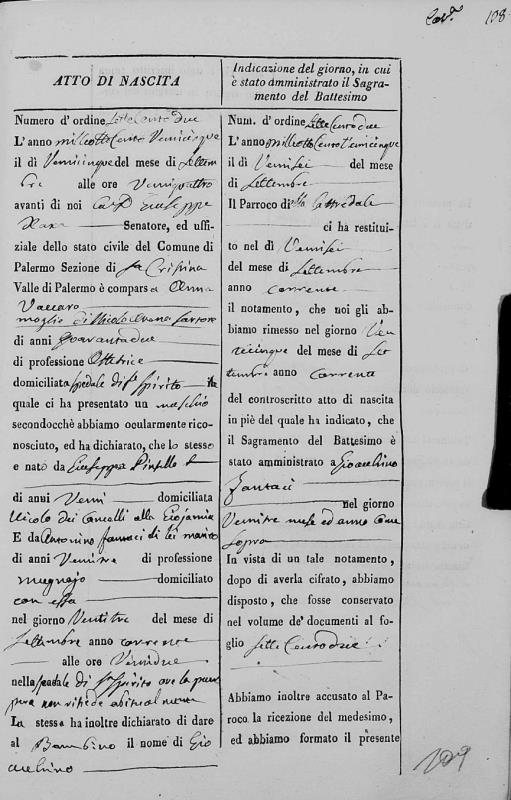 108
ATTO DI NASCITA
Numero d'ordine Sette Cento due
L'anno mille otto Cento Venticinque
il dì Venticinque del mese di Settem
bre alle ore Ventiquattro
avanti di noi Giuseppe
Senatore, ed uffi-
ziale dello stato civile del Comune di
Palermo Sezione di Sa Cristina
Valle di Palermo è comparsa Anna
Vaccaro
moglie di Nicolò Sartore
di anni Quarantadue
di professione Ostetrice
domiciliata Spedale di So Spirito la
quale ci ha presentato un maschio
secondocchè abbiamo ocularmente rico-
nosciuto, ed ha dichiarato, che lo stesso
è nato da Giuseppa
di anni Venti domiciliata
Vicolo dei alla
E da Antonino fantaci di lei marito
di anni Ventitre di professione
mugnajo domiciliato
con essa
nel giorno Ventitre del mese di
Settembre anno corrente
alle ore Ventidue
nella spedale di So Spirito ove la
pera non risiede abitualmente
La stessa ha inoltre dichiarato di dare
al Bambino il nome di Gio
acchino
Indicazione del giorno, in cui
è stato amministrato il Sagra-
mento del Battesimo
Num. d'ordine Sette Cento due
L'anno mille otto Cento Venticinque
il dì Ventisei del mese
di Settembre
Il Parroco di Cattedrale
ci ha restitui-
to nel dì Ventisei
del mese di Settembre
anno corrente
il notamento, che noi gli ab-
biamo rimesso nel giorno Ven
ticinque del mese di Set
tembre anno Corrente
del controscritto atto di nascita
in piè del quale ha indicato, che
il Sagramento del Battesimo è
stato amministrato a Gioacchino
Fantaci
nel giorno
Ventitre mese ed anno Come
Sopra
In vista di un tale notamento,
dopo di averla cifrato, abbiamo
disposto, che fosse conservato
nel volume de' documenti al fo-
glio Sette Cento due
Abbiamo inoltre accusato al Pa-
roco la ricezione del medesimo,
ed abbiamo formato il presente
109